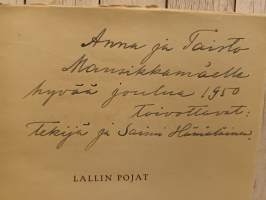 Anna ja Taisto
Mansikkamäelle
hyvää joulua 1950
toivottavat:
tekijä ja Saimi Hämäläinen.
LALLIN POJAT